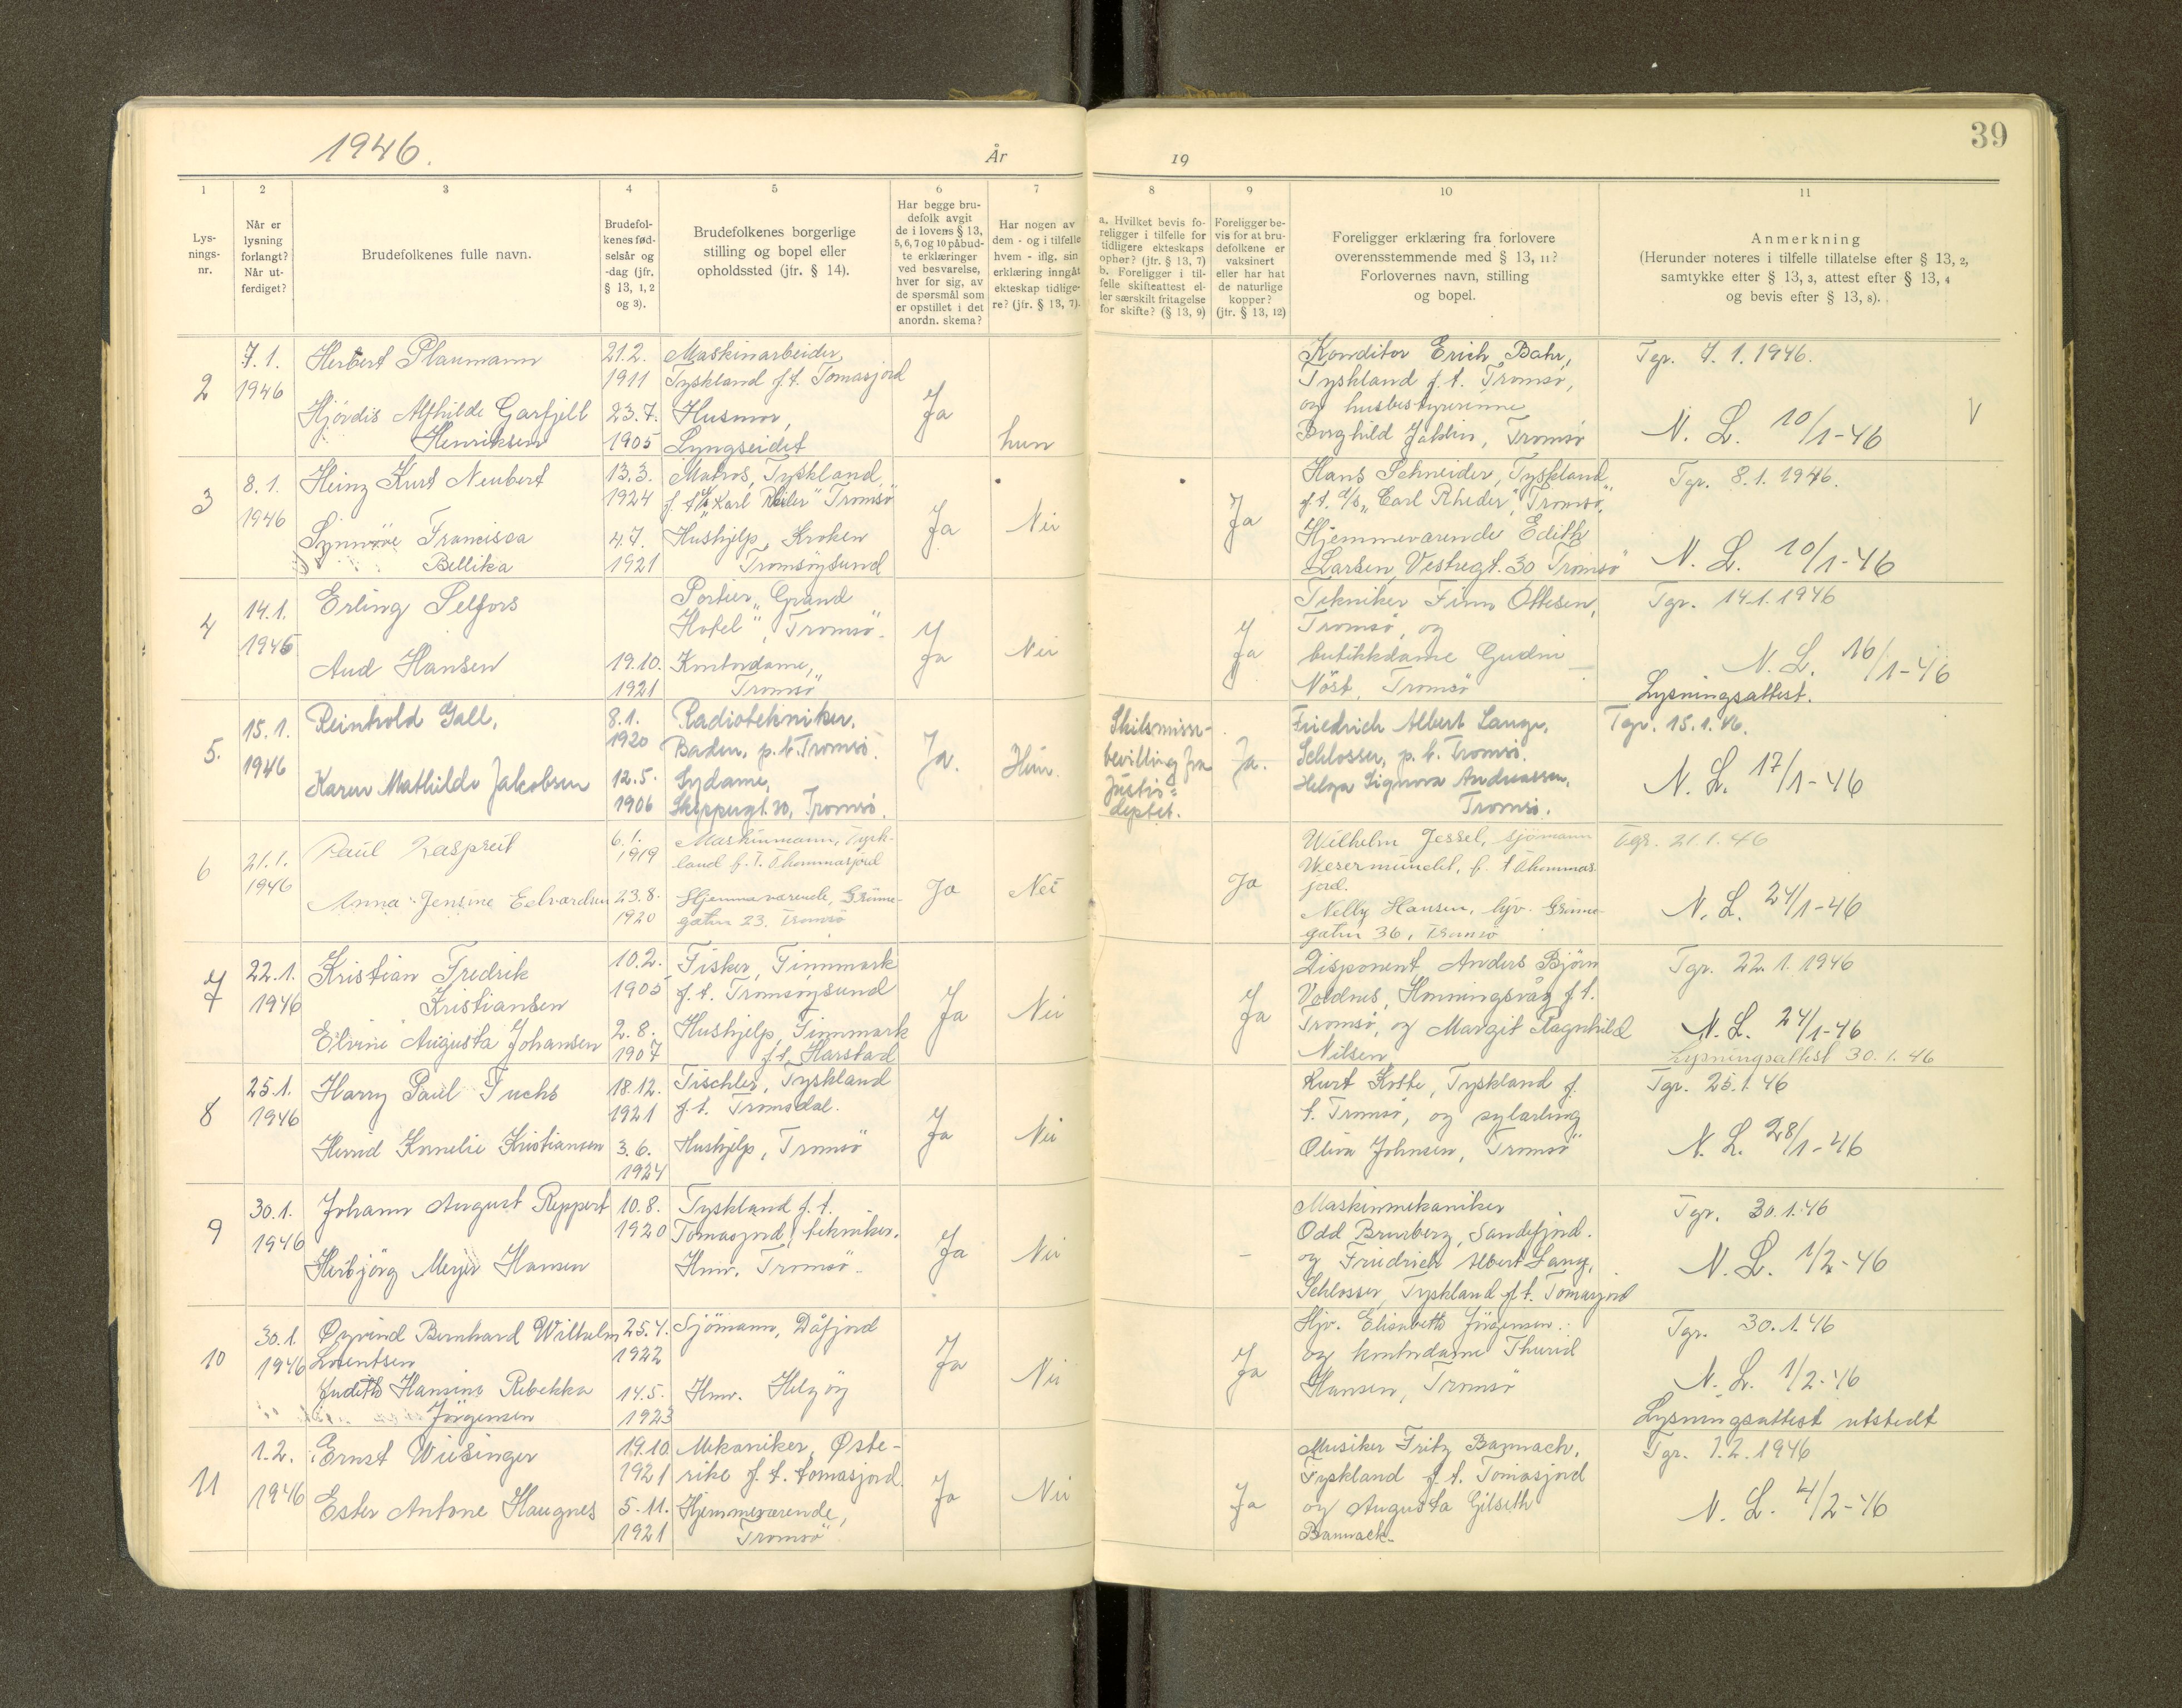 1946.
År
19
39
1
2
3
4
5
6
7
8
9
10
11
Lys-
nings-
nr.
Når er
lysning
forlangt?
Når ut-
ferdiget?
Brudefolkenes fulle navn.
Brudefol-
kenes fød-
selsår og
-dag (jfr.
§ 13, 1, 2
og 3).
Brudefolkenes borgerlige
stilling og bopel eller
opholdssted (jfr. § 14).
Har begge bru-
defolk avgit
de i lovens § 13,
5, 6, 7 og 10 påbud-
te erklæringer
ved besvarelse,
hver for sig, av
de spørsmål som
er opstillet i det
anordn. skema?
Har nogen av
dem - og i tilfelle
hvem - iflg. sin
erklæring inngåt
ekteskap tidlige-
re? (jfr. § 13, 7).
a. Hvilket bevis fo-
religger i tilfelle for
tidligere ekteskaps
ophør? (jfr. § 13, 7)
b. Foreligger i til-
felle skifteattest el-
ler særskilt fritagelse
for skifte? (§ 13, 9)
Foreligger be-
vis for at bru-
defolkene er
vaksinert
eller har hat
de naturlige
kopper?
(jfr. § 13, 12)
Foreligger erklæring fra forlovere
overensstemmende med § 13, 11?
Forlovernes navn, stilling
og bopel.
Anmerkning
(Herunder noteres i tilfelle tillatelse efter § 13, 2,
samtykke efter § 13, 3, attest efter § 13, 4
og bevis efter § 13, 8).
2
7.1.
1946
Herbert Plaumann
Hjördis Alfhilde Garfjell
Henriksen
21.2.
1911
23.7.
1905
Maskinarbeider,
Tyskland f.t. Tomasjord
Husmor,
Lyngseidet
Ja
hun
Konditor Erich Bahr,
Tyskland f.t. Tromsö,
og husbestyrerinne
Borghild Jaklin, Tromsö
Tgr. 7.1.1946.
N. L. 10/1-46
V
3
8.1.
1946
Heinz Kurt Neubert
Synnöve Francisca
Bellika
13.3.
1924
4.7.
1921
Matros, Tyskland,
f.t. Karl Tromsö
Hushjelp, Kroken
Tromsöysund
Ja
Nei
Ja
Hans Schneider, Tyskland
f.t. "Carl Rheder", Tromsö,
Hjemmeværende Edith
Larsen, Vestregt. 30 Tromsö
Tgr. 8.1.1946.
N. L. 10/1-46
4
14.1.
1946
Erling Selfors
Aud Hansen
19.10.
1921
Portier "Grand
Hotel", Tromsö.
Kontordame,
Tromsö
Ja
Nei
Ja
Tekniker Finn Ottesen,
Tromsö, og
butikkdame Gudni
Nöst, Tromsö
Tgr. 14.1.1946
N. L. 16/1-46
Lysningsattest.
5.
15.1.
1946
Reinhold Gall,
Karen Mathilde Jakobsen
8.1.
1920
12.5.
1906
Radiotekniker.
Baden, p.t. Tromsö.
Sydame,
Skippergt. 20, Tromsö.
Ja.
Hun.
Skilsmisse-
bevilling fra
Justis-
deptet.
Ja.
Friedrich Albert Lange,
Schlosser, p.t. Tromsö.
Helga Signora Andreassen,
Tromsö.
Tgr. 15.1.46.
N. L. 17/1-46
6
21.1.
1946
Paul Laspreit
Anna Jensine Edvardsen
6.1.
1919
23.8.
1920
Maskinmann, Tysk-
land f.t. Thommasjord
Hjemmeværende, Grönne-
gaten 23. Tromsö
Ja
Nei
Ja
Wilhelm Jessel, sjömann
Wesermündet, f.t Thommas
jord.
Nelly Hansen, hjv. Grönne-
gaten 36, Tromsö
Tgr. 21.1.46
N. L. 24/1-46
7
22.1.
1946
Kristian Fredrik
Kristiansen
Elvine Augusta Johansen
10.2.
1905
2.8.
1907
Fisker, Finnmark
f.t. Tromsöysund
Hushjelp, Finnmark
f.t. Harstad
Ja
Nei
Ja
Disponent Anders Björn
Voldnes, Honningsvåg f.t.
Tromsö, og Margit Ragnhild
Nilsen
Tgr. 22.1.1946
N. L. 24/1-46
Lysningsattest 30.1.46
8
25.1.
1946
Harry Paul Fuchs
Kornelie Kristiansen
18.12.
1921
3.6.
1924
Tischler, Tyskland
f.t. Tromsdal.
Hushjelp, Tromsö
Ja
Nei
Kurt Kotte, Tyskland f.
t. Tromsö, og sylærling
Oliva Johnsen, Tromsö
Tgr. 25.1.46
N. L. 28/1-46
9
30.1.
1946
Johann August Reppert
Herbjörg Meyer Hansen
10.8.
1920
Tyskland f.t.
Tomasjord, tekniker.
Hmv. Tromsö.
Ja
Nei
-
Maskinmekaniker
Odd Brunberg, Sandefjord.
og Friedrich Albert Lang,
Schlosser, Tyskland f.t. Tomasjord
Tgr. 30.1.46
N. L. 1/2-46
10
30.1
1946
Øyvind Bernhard Wilhelm
Lorentsen
Judith Hansine Rebekka
Jörgensen
25.7.
1922
14.5.
1923
Sjömann, Dåfjord
Hmv. Helgöy
Ja
Nei
Ja
Hjv. Elisabeth Jörgensen
og kontordame Thurid
Hansen, Tromsö
Tgr. 30.1.46
N. L. 1/2-46
Lysningsattest utstedt
11
1.2.
1946
Ernst Wiesinger
Ester Antone Haugnes
19.10
1921
5.11.
1921
Mekaniker, Øste-
rike f.t. Tomasjord.
Hjemmeværende,
Tromsö
Ja
Nei
Ja
Musiker Fritz Bannach,
Tyskland f.t. Tomasjord
og Augusta Gilseth
Bannach.
Tgr. 1.2.1946
N. L. 4/2-46